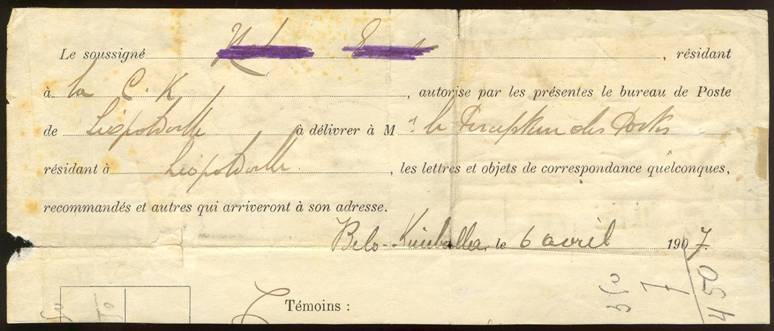 Le soussigné , résidant
à la C. K , autorise par les présentes le bureau de Poste
de Léopoldville à délivrer à Mr le Percepteur des Postes
résidant à Léopoldville , les lettres et objets de correspondance quelconques,
recommandés et autres qui arriveront à son adresse.
le 6 avril 1907
Témoins :
450